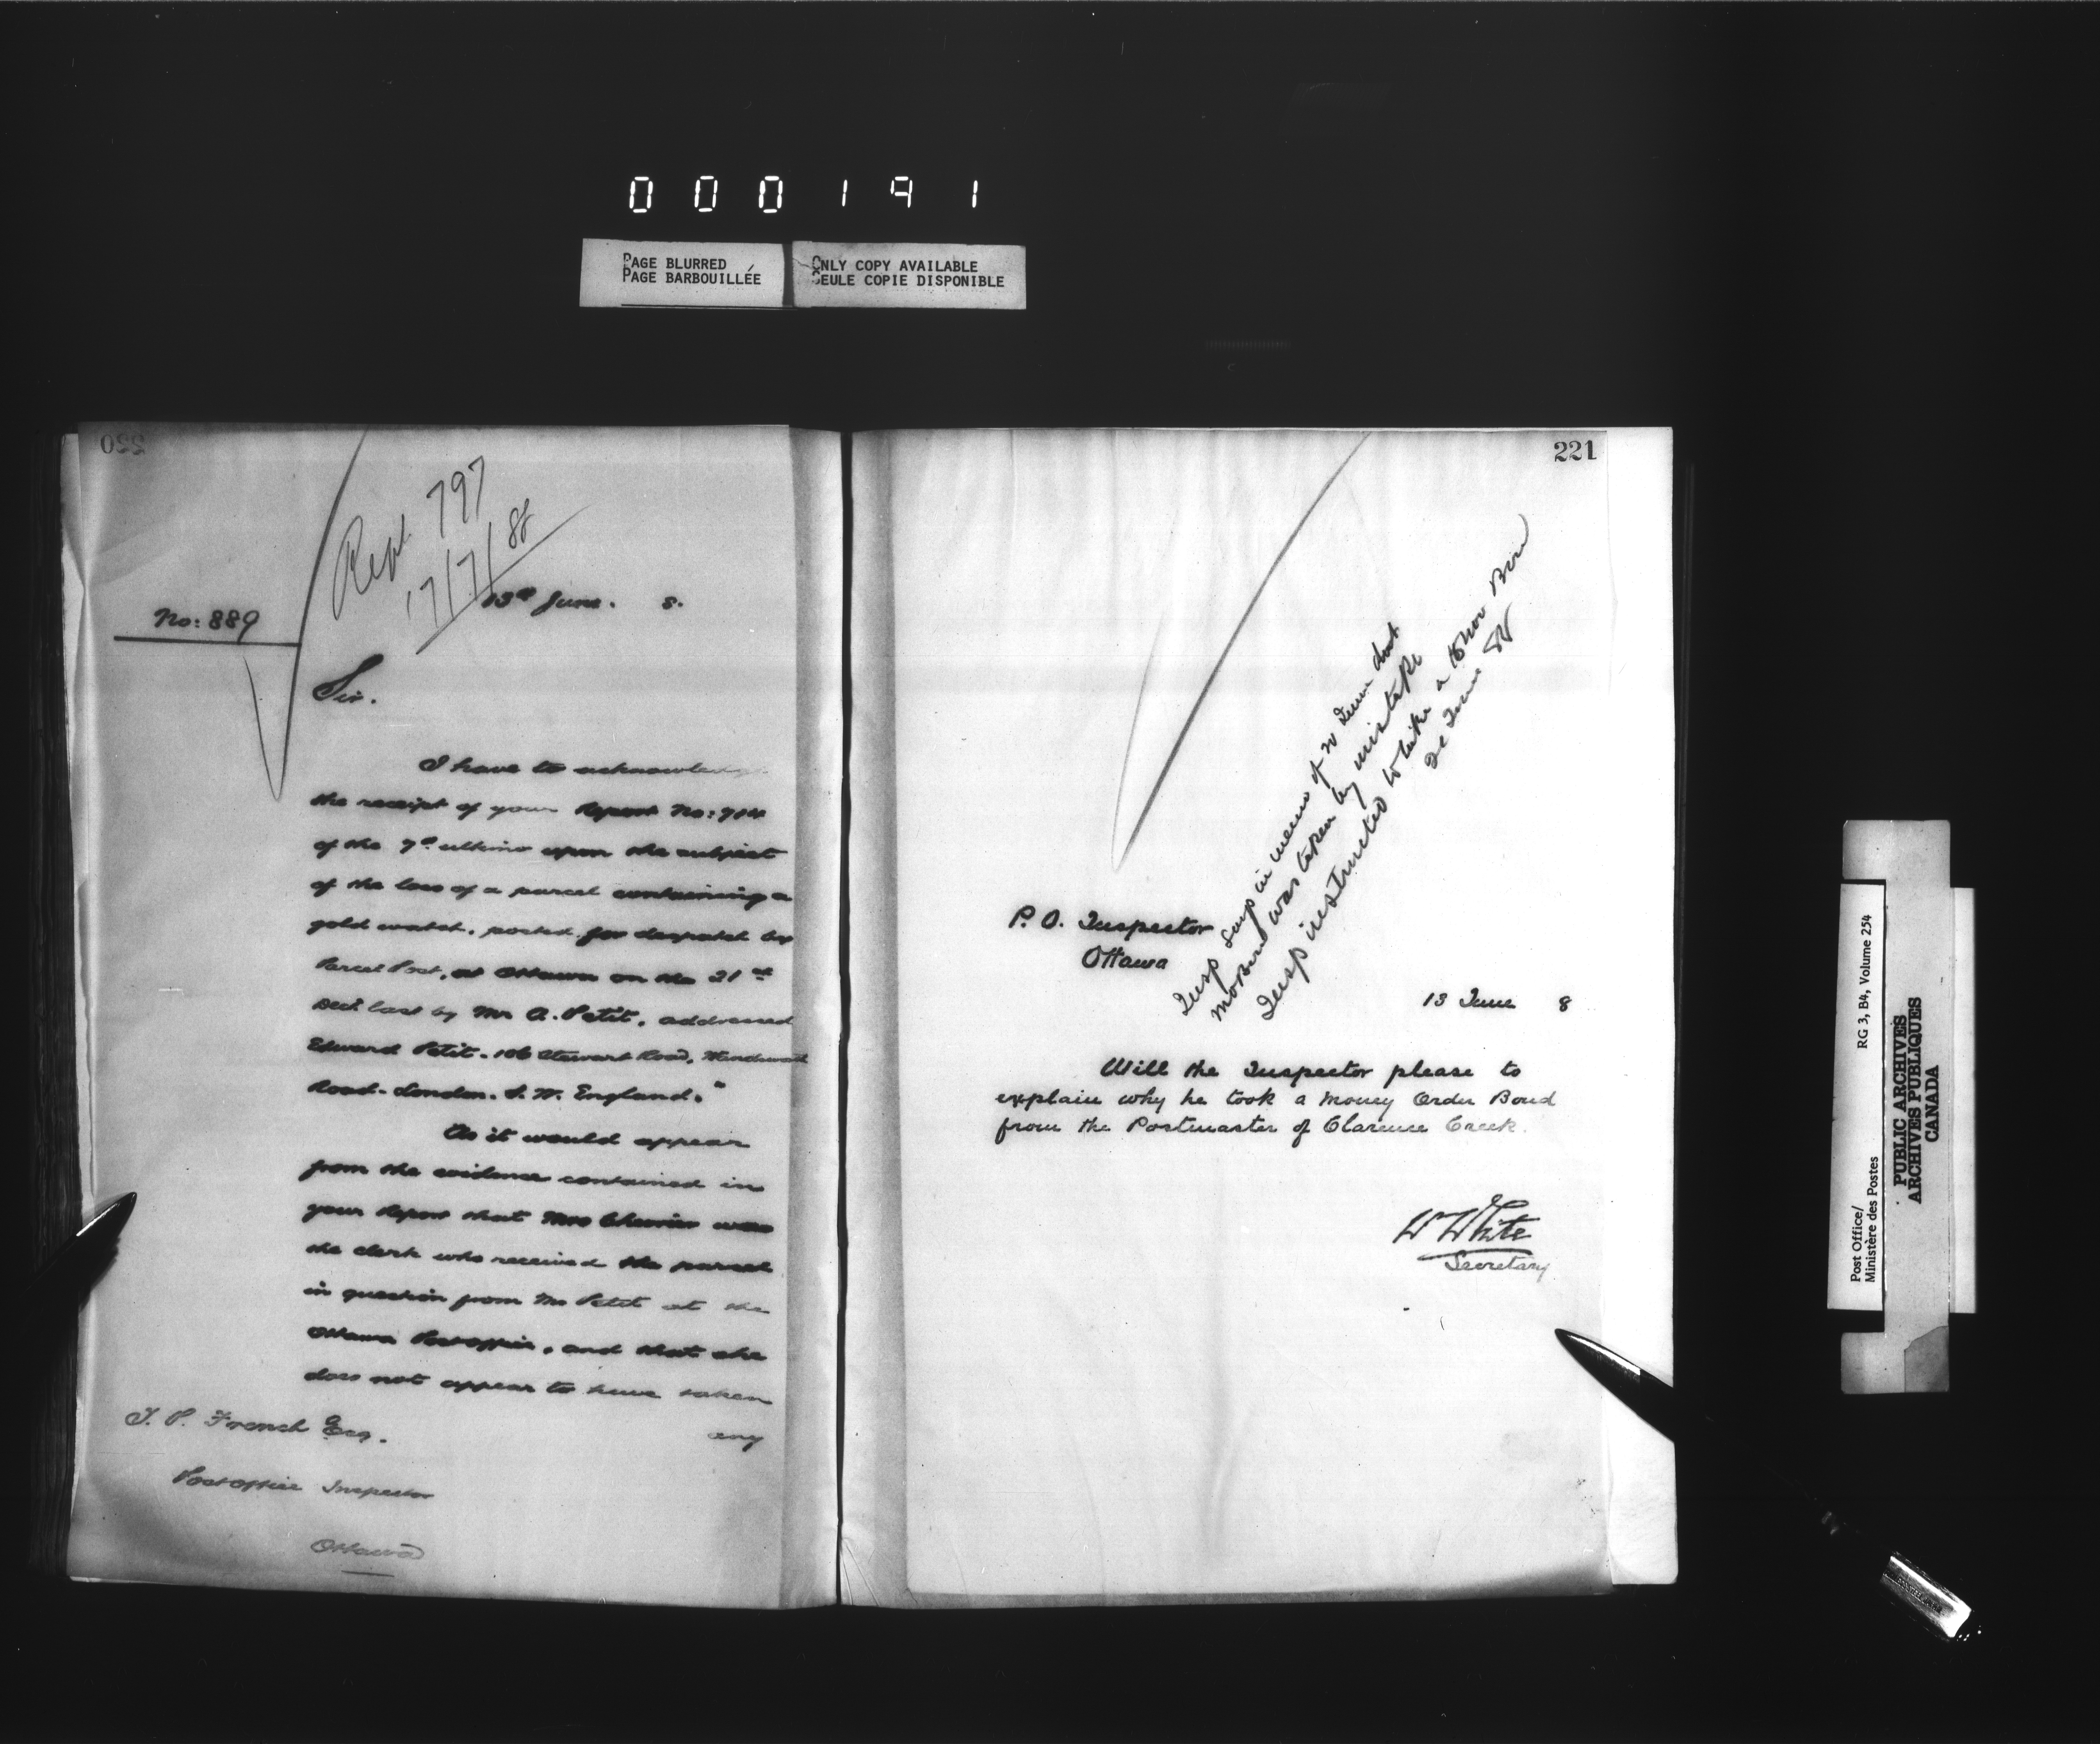 000191
PAGE BLURRED
PAGE BARBOUILLÉE
ONLY COPY AVAILABLE
SEULE COPIE DISPONIBLE
220
Rept. 797
17/7/88
13th June. 8.
No: 889
Sir.
I have to acknowledge
the receipt of your Report No: 704
of the 7th ultimo upon the subject
of the loss of a parcel containing a
gold watch, posted for despatch by
Parcel Post, at Ottawa on the 21st
Dect. last by Mr A. Petit, addressed
Edward Petit. 106 Stewart Road,
Road. London. S. W. England."
As it would appear
from the evidence contained in
your Report that Mrs Chevrier was
the clerk who received the parcel
in question from Mr Petit at the
Ottawa Post office, and that she
does not appear to have taken
any
T. P. French Esq.
Post office Inspector
Ottawa
221
Insp says in memo of June that
was taken by mistake
Insp instructed to take a
June 88
P. O. Inspector
Ottawa
13 June 8
Will the Inspector please to
explain why he took a Money Order Bond
from the Postmaster of Clarence Creek.
W White
Secretary
Post Office/
Ministère des Postes
RG 3, B4, Volume 254
PUBLIC ARCHIVES
ARCHIVES PUBLIQUES
CANADA